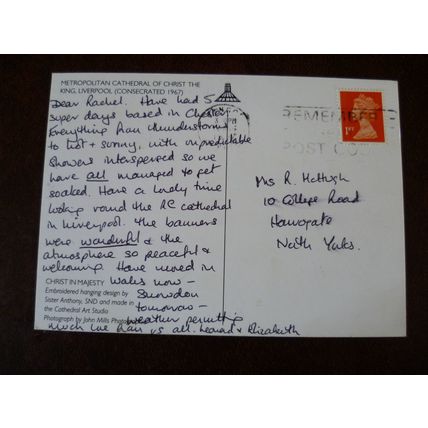 METROPOLITAN CATHEDRAL OF CHRIST THE
KING, LIVERPOOL (CONSECRATED 1967)
Dear Rachel. Have had 5
super days based in Chester
Everything from thunderstorms
to hot + sunny, with unpredictable
showers interspersed so we
have all managed to get
soaked. Have a lovely time
looking round the RC cathedral
in Liverpool. The banners
were wonderful & the
atmosphere so peaceful &
welcoming. Have moved in
CHRIST IN MAJESTY
Wales now -
Embroidered hanging design by
Sister Anthony, SND and made in
the Cathedral Art Studio
Photograph by John Mills
Snowdon
tomorrow -
weather permitting
much love from us all. Leonard & Elizabeth
REMEMBER
POST CODE
1ST
Ms R. McHugh
10 College Road
Harrogate
North Yorks.